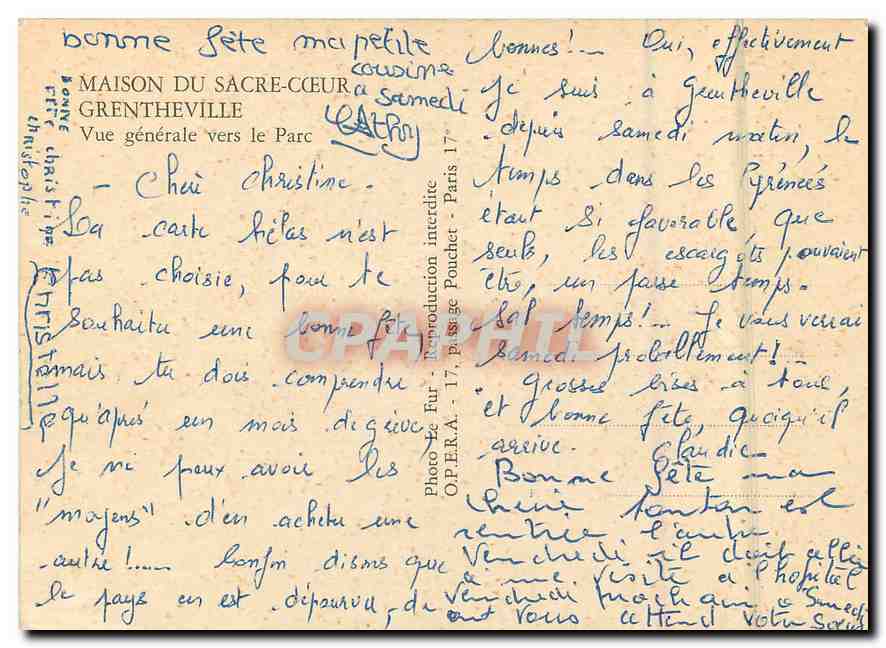 bonne fête ma petite
cousine
a samedi
Cathy
BONNE
fête christine
christophe
Christelle
MAISON DU SACRE-CŒUR
GRENTHEVILLE
Vue générale vers le Parc
- Chère Christine -
La carte hélas n'est
pas choisie, pour te
souhaiter une bonne fête,
mais tu dois comprendre
qu'après un mois de grève,
Je ne peux avoir les
"moyens" d'en acheter une
autre!..... bonfin disons que
le pays en est dépourvu, de
Photo Le Fur - Reproduction interdite
O.P.E.R.A. - 17, passage Pouchet - Paris 17e
CPAPHIL
bonnes!... Oui, effectivement
Je suis à Grentheville
depuis samedi matin, le
temps dans les Pyrénées
étant si favorable, que
seuls, les escargots pouvaient
être, un passe temps.
sal temps!... Je vous verrai
samedi probablement!
Grosses bises à tous,
et bonne fête, quoiqu'il
arrive. Claudie
Bonne fête ma
chérie tonton est
rentrée l'autre
Vendredi il doit aller
a une visite a l'hopital
Vendredi prochain a Samedi
on vous attend votre